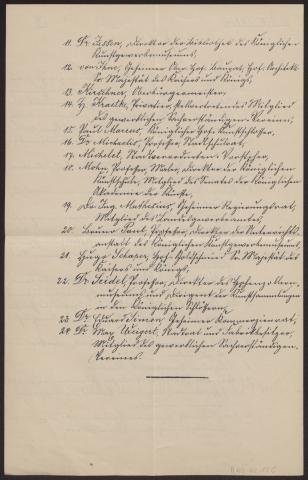 11. Dr. Jessen, Direktor der Bibliothek des Königlichen
Kunstgewerbemuseums,
12. von Ihne, Geheimer Ober-Hof-Baurat, Hof-Architekt
Sr. Majestät des Kaisers und Königs,
13. Kirschner, Oberbürgermeister,
14. H. Kraetke, Privatier, stellvertretendes Mitglied
des gewerblichen Sachverständigen-Vereins,
15. Paul Marcus, Königlicher Hof-Kunstschlosser,
16. Dr. Michaelis, Professor, Stadtschulrat,
17. Michelet, Stadtverordneten-Vorsteher,
18. Mohn, Professor, Maler, Direktor der Königlichen
Kunstschule, Mitglied des Senates der Königlichen
Akademie der Künste,
19. Dr. Ing. Muthesius, Geheimer Regierungsrat,
Mitglied des Landesgewerbeamtes,
20. Bruno Paul, Professor, Direktor der Unterrichts-
anstalt des Königlichen Kunstgewerbemuseums,
21. Hugo Schaper, Hof-Goldschmied Sr. Majestät des
Kaisers und Königs,
22. Dr. Seidel, Professor, Direktor des Hohenzollern-
museums und Dirigent der Kunstsammlungen
in den Königlichen Schlössern,
23. Dr. Eduard Simon, Geheimer Kommerzienrat,
24. Dr. Max Weigert, Stadtrat und Fabrikbesitzer,
Mitglied des gewerblichen Sachverständigen-
Vereines.